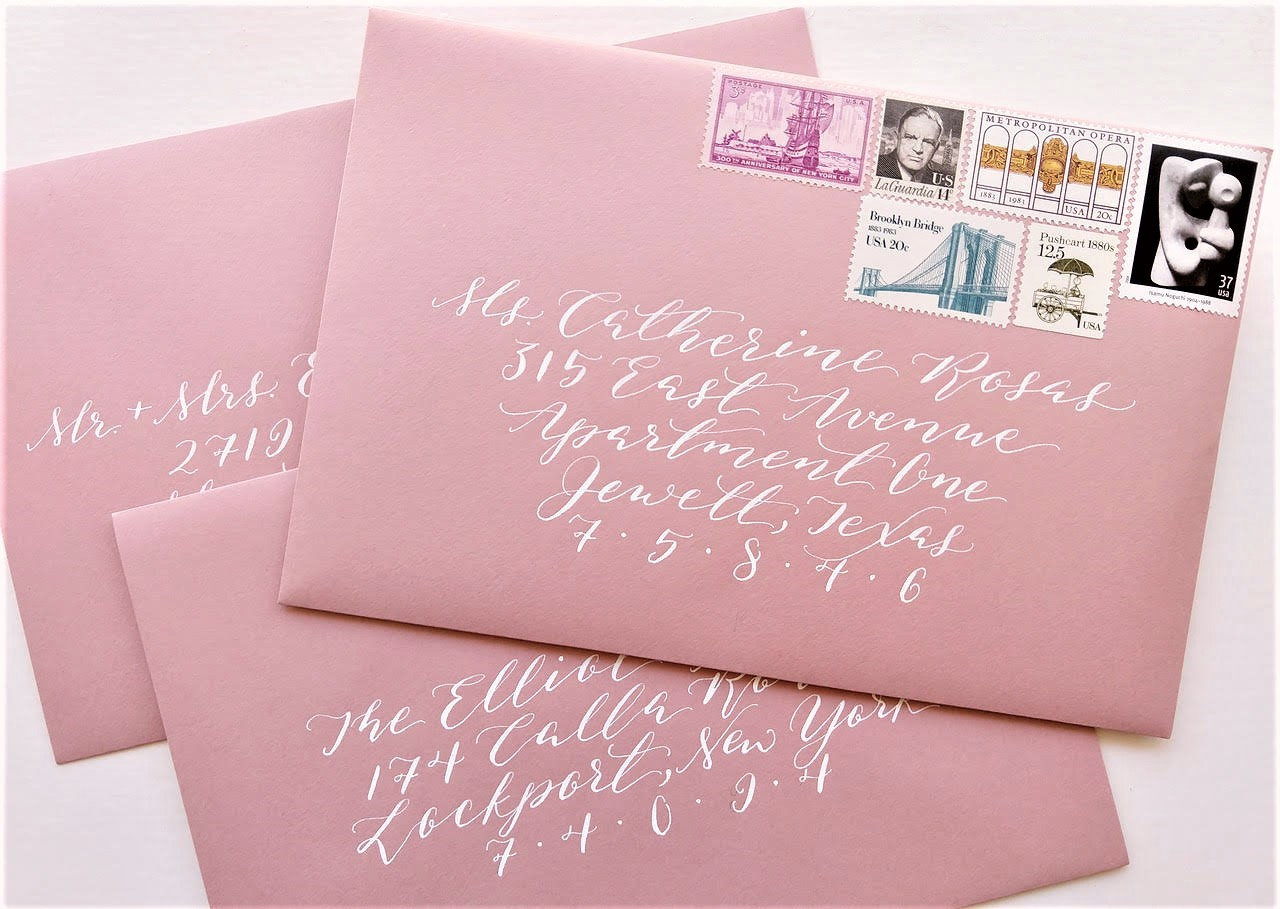 POSTAGE
3¢
U.S.A.
300TH ANNIVERSARY OF NEW YORK CITY
U·S
LaGuardia 14¢
METROPOLITAN OPERA
1883 1983 USA 20c
37
usa
Isamu Noguchi 1904-1988
Brooklyn Bridge
1883 1983
USA 20c
Pushcart 1880s
12.5
USA
Ms. Catherine Rosas
315 East Avenue
Apartment One
Jewett, Texas
7 · 5 · 8 · 4 · 6
Mr. + Mrs. E
2719
The Elliot
174 Calla
Lockport, New York
7 · 4 · 0 · 9 · 4